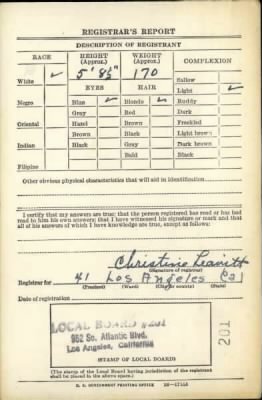 REGISTRAR'S REPORT
DESCRIPTION OF REGISTRANT
RACE HEIGHT (Approx.) WEIGHT (Approx.) COMPLEXION
White ✓ 5' 8½" 170 Sallow
EYES HAIR Light ✓
Negro Blue ✓ Blonde ✓ Ruddy
Gray Red Dark
Oriental Hazel Brown Freckled
Brown Black Light brown
Indian Black Gray Dark brown
Bald Black
Filipino
Other obvious physical characteristics that will aid in identification
I certify that my answers are true; that the person registered has read or has had
read to him his own answers; that I have witnessed his signature or mark and that
all of his answers of which I have knowledge are true, except as follows:
Christine Leavitt
(Signature of registrar)
Registrar for 41 Los Angeles Cal
(Precinct) (Ward) (City or county) (State)
Date of registration
LOCAL BOARD #201
952 So. Atlantic Blvd.
Los Angeles, California
201
STAMP OF LOCAL BOARD)
(The stamp of the Local Board having jurisdiction of the registrant
shall be placed in the above space.)
U. S. GOVERNMENT PRINTING OFFICE 16-17105